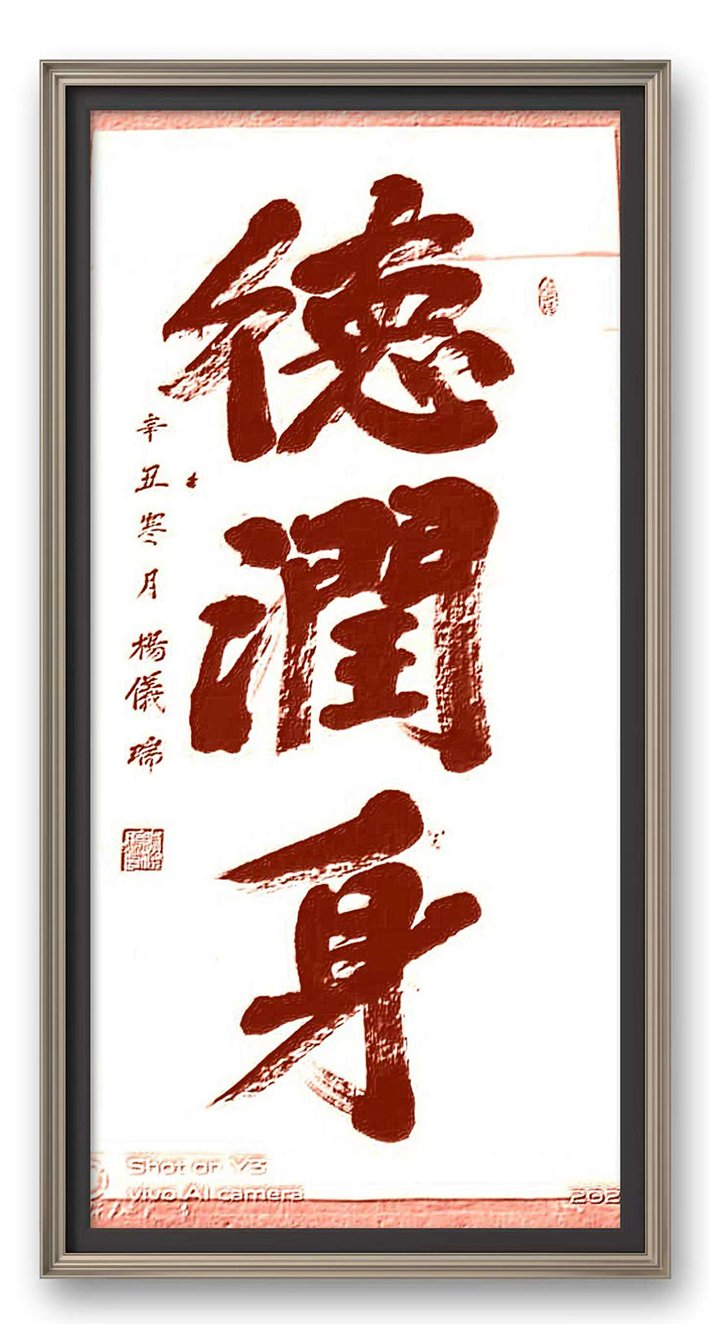 德潤身
辛丑寒月楊儀瑞
Shot on Y3
vivo AI camera
202